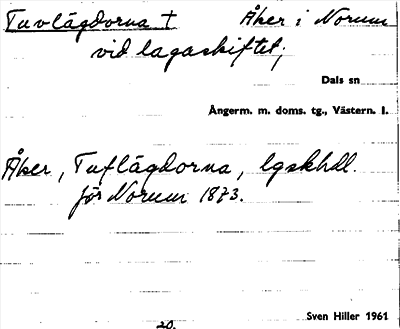 Tuvlägdorna † Åker i Norum
vid lagaskiftet;
Dals sn
Ångerm. m. doms. tg., Västern. l.
Åker, Tuflägdorna, lgskhdl.
för Norum 1873.
Sven Hiller 1961
20.